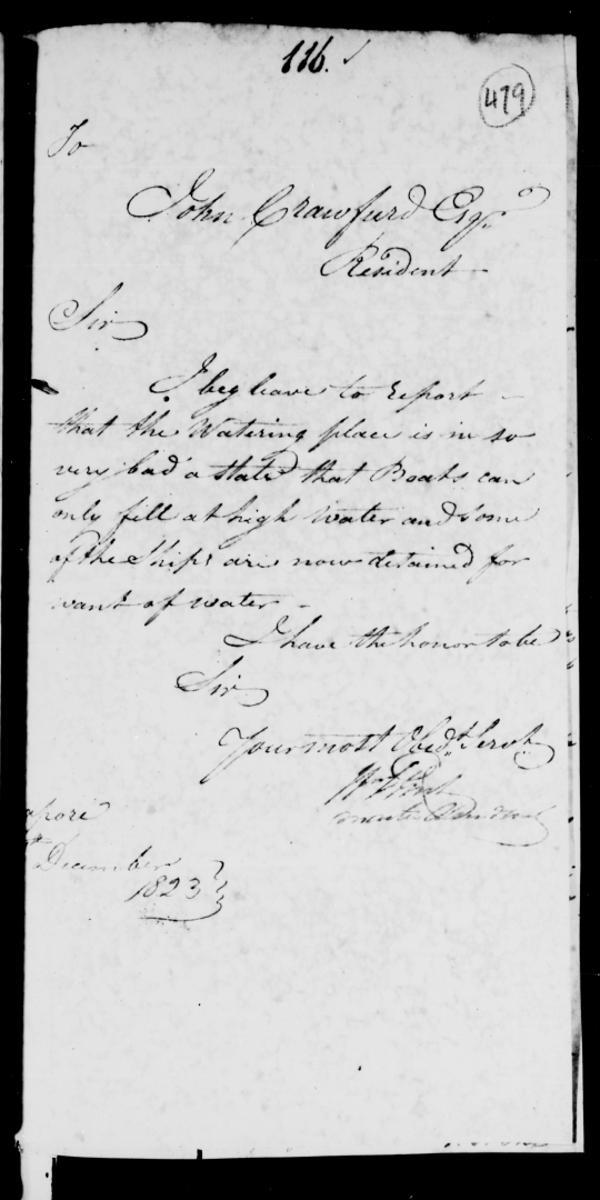 116.
479
To
John Crawfurd Esqr
Resident
Sir
I beg leave to report
that the Watering place is in so
very bad a state that Boats can
only fill at high Water and some
of the Ships are now detained for
want of water -
I have the honor to be
Sir
Your most Obedt Servt
Wm Flint
apore
December
1823